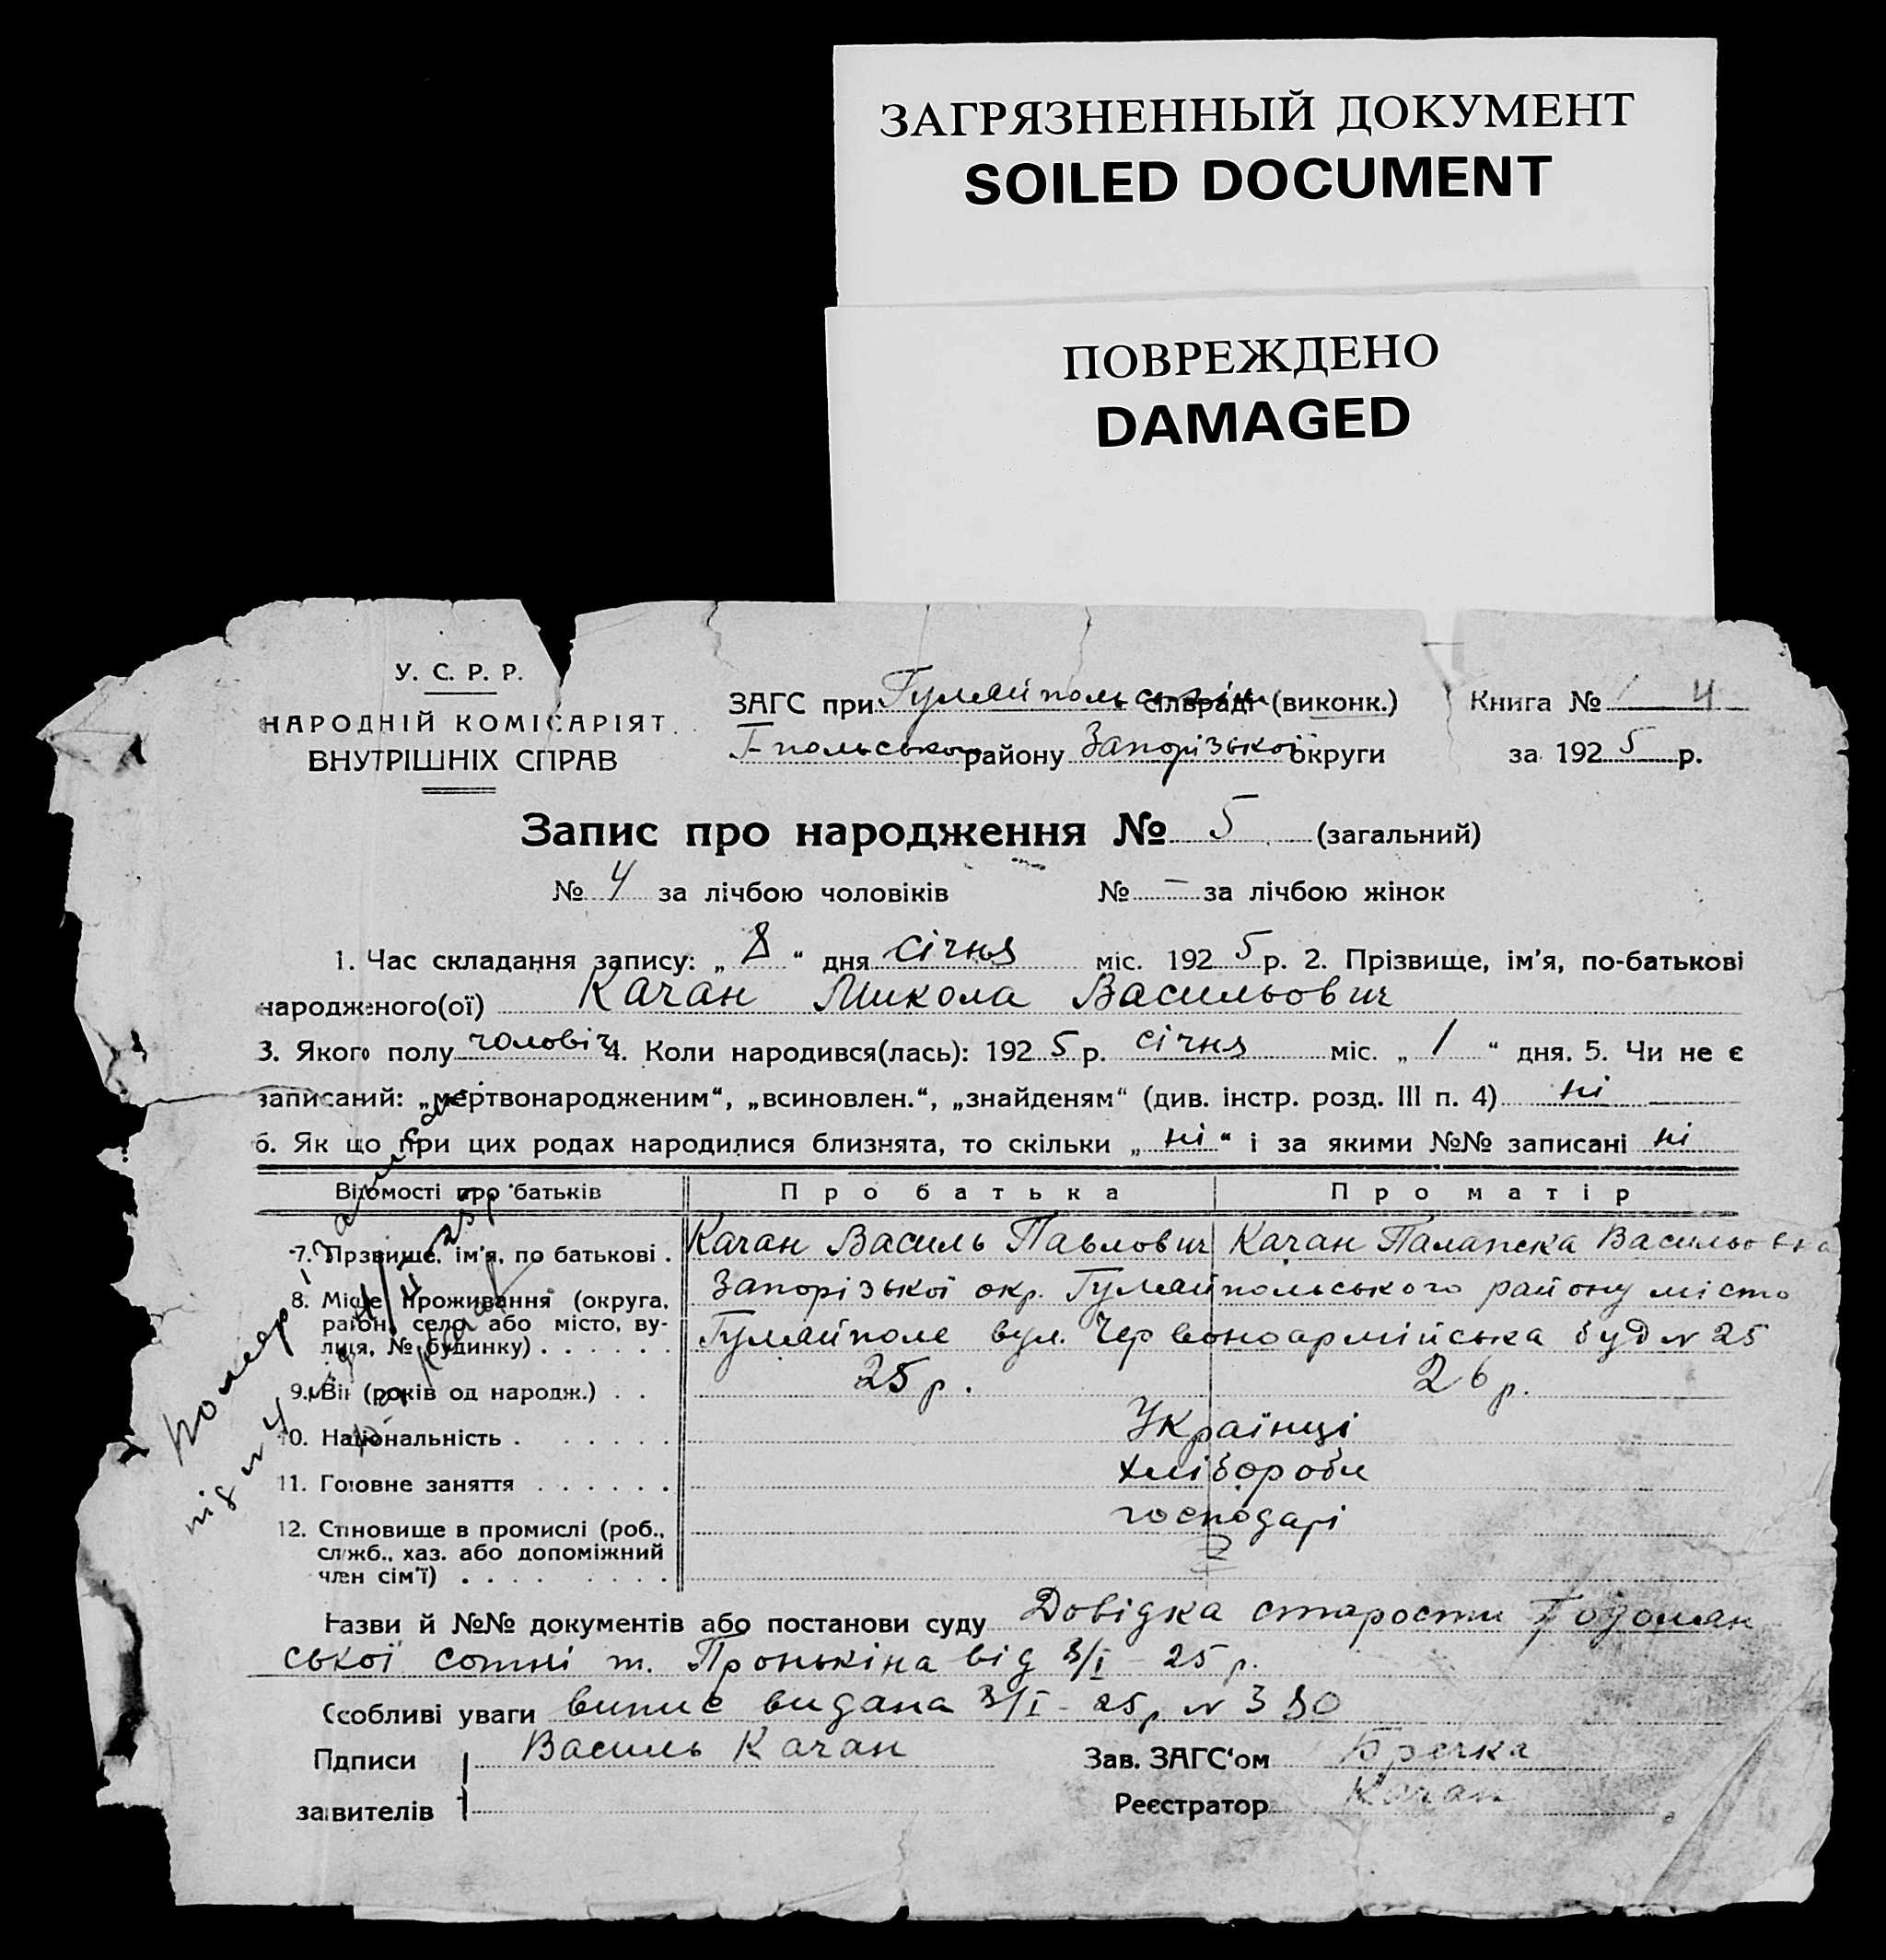 ЗАГРЯЗНЕННЫЙ ДОКУМЕНТ
SOILED DOCUMENT
ПОВРЕЖДЕНО
DAMAGED
У. С. Р. Р.
НАРОДНІЙ КОМІСАРІЯТ
ВНУТРІШНІХ СПРАВ
ЗАГС при Гуляйпольськім сільраді (виконк.)
Г-польського району Запорізької округи
Книга № 4
за 1925 р.
Запис про народження № 5 (загальний)
№ 4 за лічбою чоловіків № — за лічбою жінок
1. Час складання запису: „ 8 “ дня січня міс. 1925 р. 2. Прізвище, ім'я, по-батькові
народженого(ої) Качан Микола Васильович
3. Якого полу чоловіч 4. Коли народився(лась): 1925 р. січня міс. „ 1 “ дня. 5. Чи не є
записаний: „мертвонародженим“, „всиновлен.“, „знайденям“ (див. інстр. розд. III п. 4) ні
6. Як що при цих родах народилися близнята, то скільки „ ні “ і за якими №№ записані ні
Відомості про батьків Про батька Про матір
7. Прізвище, ім'я, по батькові . Качан Василь Павлович Качан Палажка Васильовна
8. Місце проживання (округа, Запорізької окр. Гуляйпольського району місто
район, село або місто, ву-
лиця, № будинку) . . . . . . Гуляйполе вул. Червоноармійська буд № 25
9. Вік (років од народж.) . . 25 р. 26 р.
10. Національність . . . . . . Українці
11. Головне заняття . . . . . . хлібороби
12. Становище в промислі (роб., господарі
служб., хаз. або допоміжний
член сім'ї) . . . . . . . .
Назви й №№ документів або постанови суду Довідка старости
ської сотні т. Пронькіна від 8/I - 25 р.
Особливі уваги випис видана 8/I - 25 р №
Підписи Василь Качан Зав. ЗАГС'ом
заявителів Реєстратор Качан
помер
під № 4